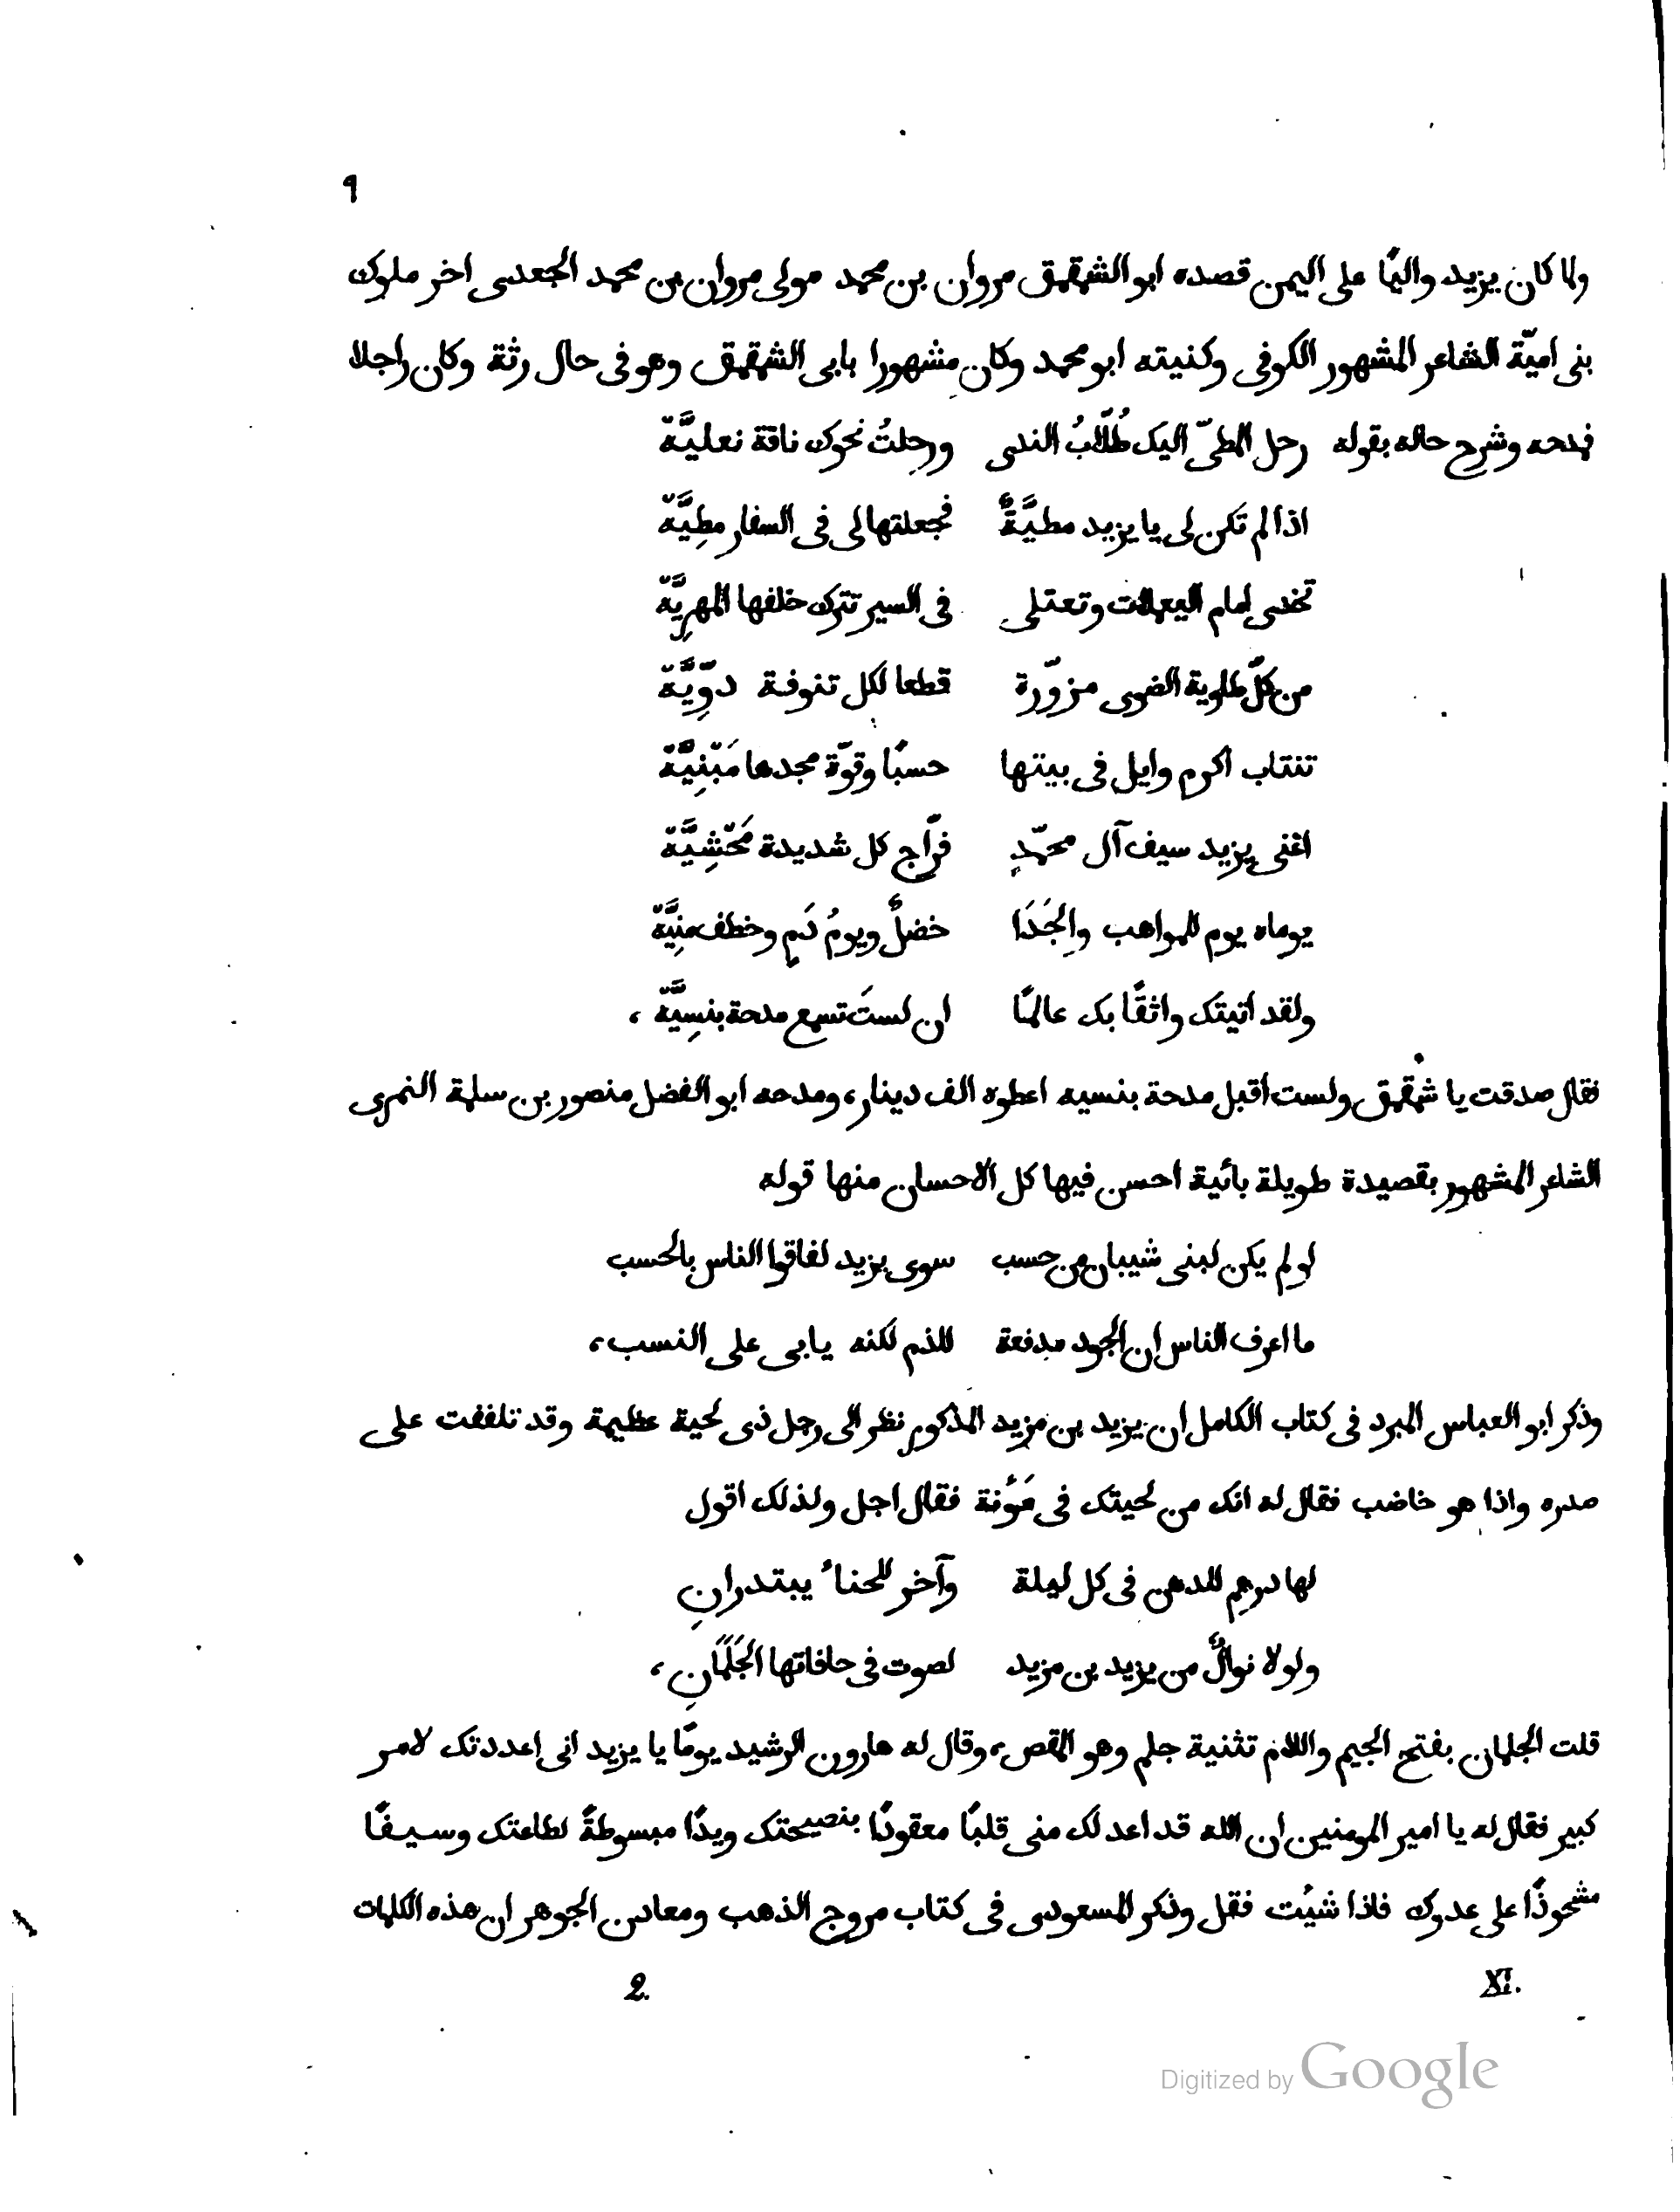 ٩
ولما كان يزيد واليًا على اليمن قصده ابو الشمقمق مروان بن محمد مولى مروان بن محمد الجعدى اخر ملوك
بنى اميّة الشاعر المشهور الكوفى وكنيته ابو محمد وكان مشهورا بابى الشمقمق وهو فى حال رثة وكان راجلا
فمدحه وشرح حاله بقوله رحل المطىّ اليك طُلّابُ الندى ورحلتُ نحوك ناقة نعليَّةْ
اذا لم تكن لى يا يزيد مطيَّةٌ فجعلتها لى فى السفار مطِيَّةْ
تخدى امام اليعملات وتعتلى فى السير تترك خلفها المهرِيَّةْ
من كلّ طاوية الضوى مزوّرة قطعا لكل تنوفة دوِّيَّةْ
تنتاب اكرم وايل فى بيتها حسبًا وقوّة مجدها مَبْنِيَّةْ
اعْنى يزيد سيف آل محمّدٍ فرّاج كل شديدة مَخْشِيَّةْ
يوماه يوم للمواهب والجَدَا خضلٌ ويومُ دَمٍ وخطف منِيَّةْ
ولقد اتيتك واثقًا بك عالمًا ان لستَ تسمع مدحة بنسِيَّةْ،
فقال صدقت يا شمقمق ولست اقبل مدحة بنسيه اعطوه الف دينار، ومدحه ابو الفضل منصور بن سلمة النمرى
الشاعر المشهور بقصيدة طويلة بائية احسن فيها كل الاحسان منها قوله
لو لم يكن لبنى شيبان من حسب سوى يزيد لفاقوا الناس بالحسب
ما اعرف الناس ان الجود مدفعة للذم لكنه يابى على النسب،
وذكر ابو العباس المبرد فى كتاب الكامل ان يزيد بن مزيد المذكور نظر الى رجل ذى لحية عظيمة وقد تلففت على
صدره واذا هو خاضب فقال له انك من لحيتك فى مَوُنة فقال اجل ولذلك اقول
لها درهم للدهن فى كل ليلة وآخر للحناءُ يبتدرانِ
ولولا نوالٌ من يزيد بن مزيد لصوت فى حافاتها الجَلَمَانِ،
قلت الجلمان بفتح الجيم واللام تثنية جلم وهو المقص، وقال له هارون الرشيد يومًا يا يزيد انى اعددتك لامر
كبير فقال له يا امير المومنين ان الله قد اعد لك منى قلبًا معقودًا بنصيحتك ويدًا مبسوطةً لطاعتك وسيفًا
مشحوذًا على عدوك فاذا شئت فقل وذكر المسعودى فى كتاب مروج الذهب ومعادن الجوهر ان هذه الكلمات
XI. 2
Digitized by Google